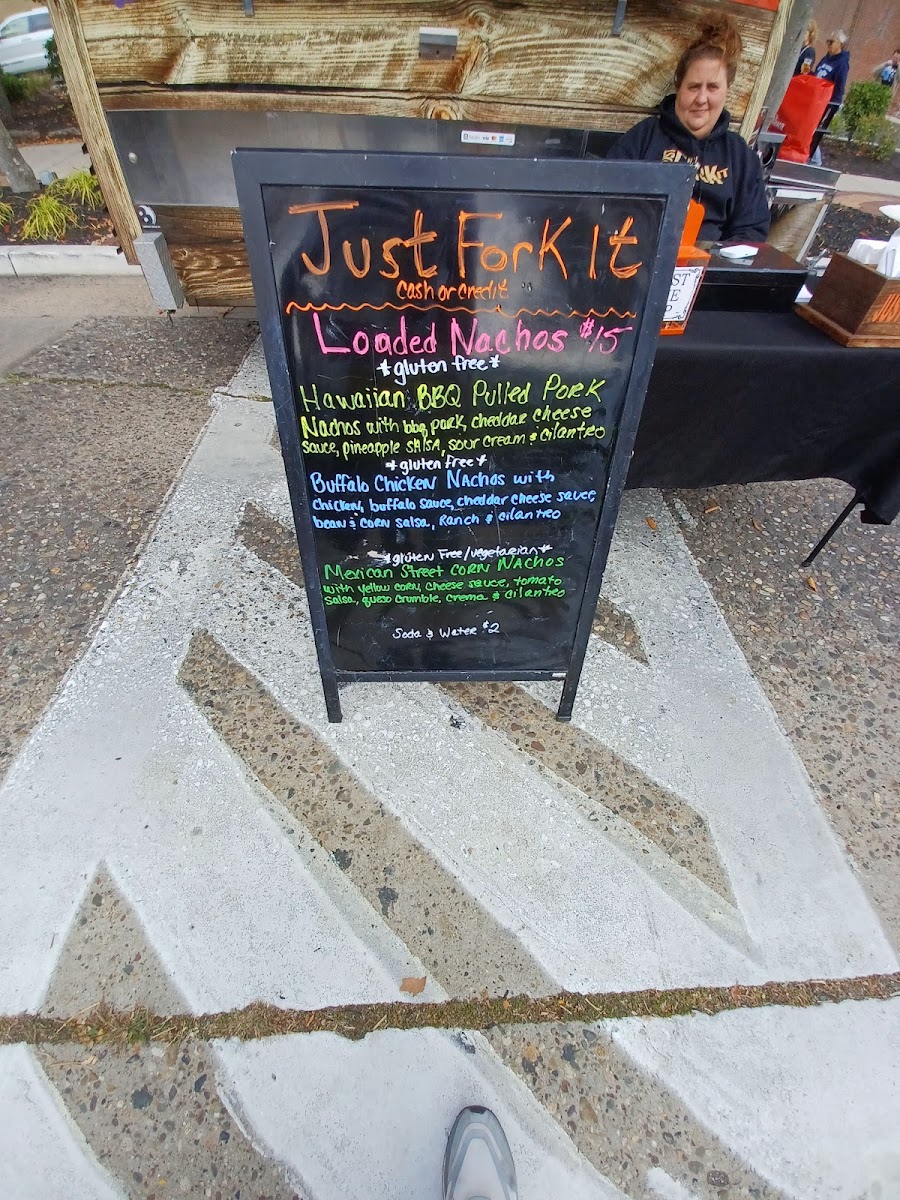 Just Fork It
Cash or credit
Loaded Nachos $15
*gluten free*
Hawaiian BBQ Pulled Pork
Nachos with bbq pork, cheddar cheese
sauce, pineapple salsa, sour cream & cilantro
*gluten free*
Buffalo Chicken Nachos with
chicken, buffalo sauce, cheddar cheese sauce,
bean & corn salsa, Ranch & cilantro
*gluten free/vegetarian*
Mexican Street Corn Nachos
with yellow corn, cheese sauce, tomato
salsa, queso crumble, crema & cilantro
Soda & Water $2